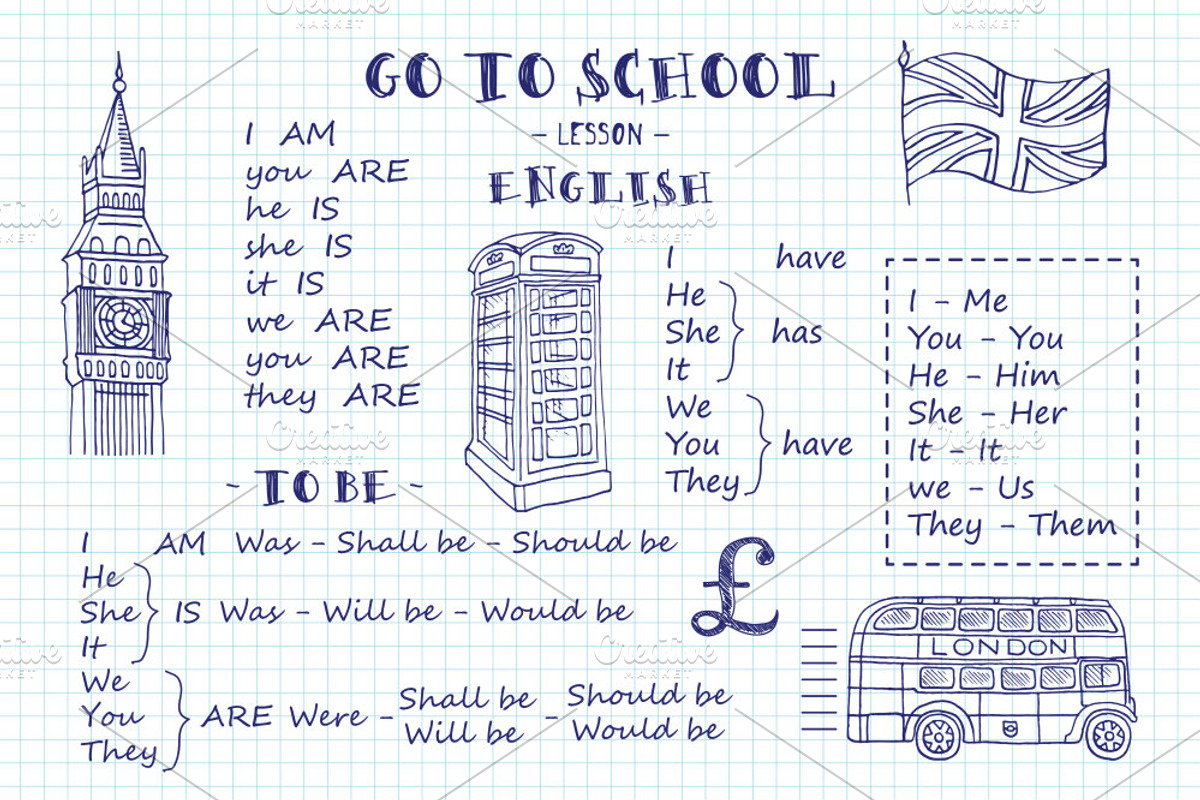 GO TO SCHOOL
- LESSON -
ENGLISH
I AM
you ARE
he IS
she IS
it IS
we ARE
you ARE
they ARE
I have
He
She has
It
We
You have
They
I - Me
You - You
He - Him
She - Her
It - It
we - Us
They - Them
- TO BE -
I AM Was - Shall be - Should be
He
She IS Was - Will be - Would be
It
We
You ARE Were - Shall be - Should be
Will be Would be
They
£
LONDON
Creative
MARKET